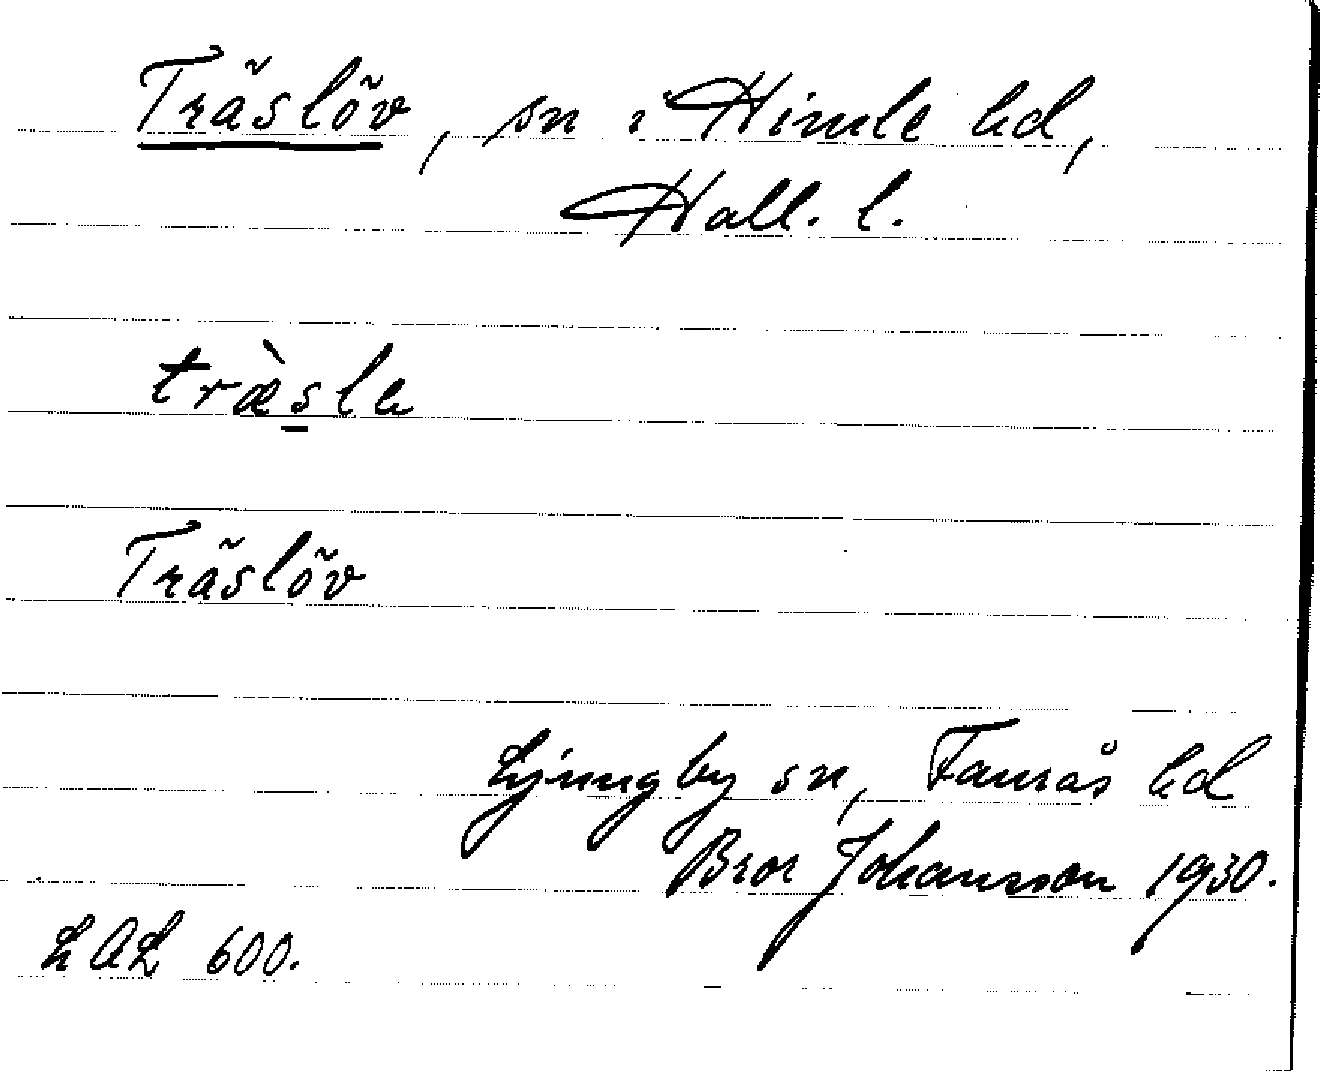 Träslöv, sn i Himle hd,
Hall. l.
træ̀s̠le
Träslöv
Ljungby sn, Faurås hd
Bror Johansson 1930.
LAL 600.